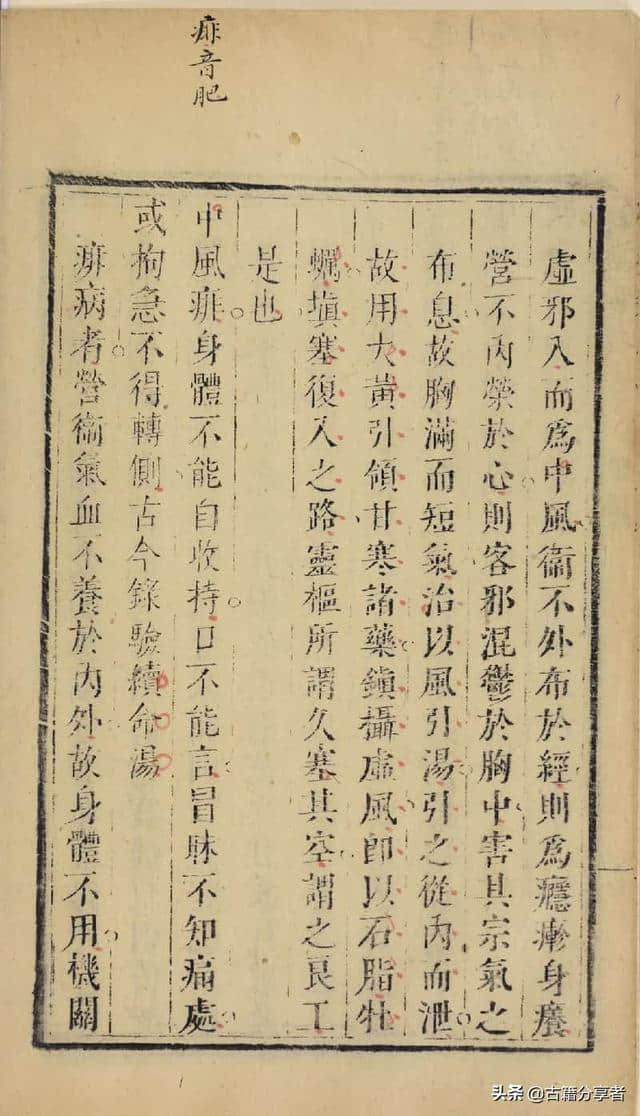 痱音肥
虛邪入而爲中風衞不外布於經則爲癮瘮身癢
營不內榮於心則客邪混鬱於胸中害其宗氣之
布息故胸滿而短氣治以風引湯引之從內而泄
故用大黃引領甘寒諸藥鎮攝虛風卽以石脂牡
蠣塡塞復入之路靈樞所謂久塞其空謂之良工
是也
中風痱身體不能自收持口不能言冒昧不知痛處
或拘急不得轉側古今錄驗續命湯
痱病者營衞氣血不養於內外故身體不用機關
头条@古籍分享者